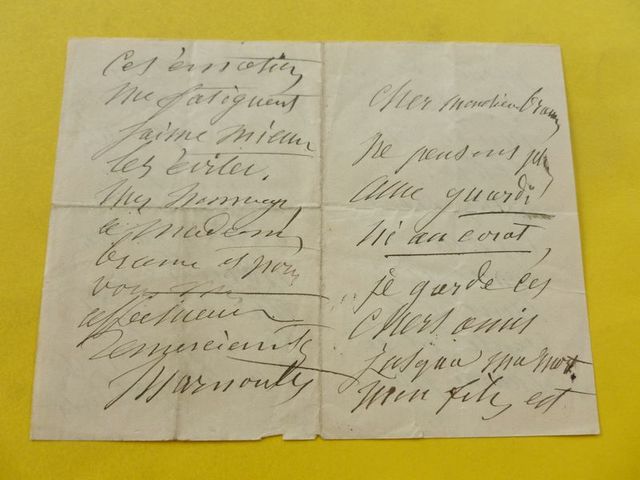 Cher monsieur Brame
Ne pensons plus
aux guardi
ni au corot,
je garde ces
chers amis
jusqua ma mort
mon fils est
Ces émotions
me fatiguent
jaime mieux
les éviter.
Mes hommages
à madame
brame et pour
vous mes
affectueux
remerciements